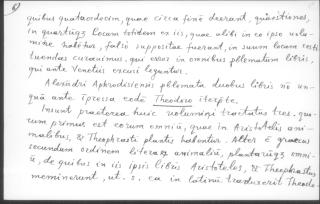 quibus quatuordecim, quae circa finē deerant, quaestiones,
in quartūq; Locum totidem ex iis, quae alibi in eo ipso volu-
mine habētur, falso suppositae fuerant, in suum locum resti
tuendas curavimus, qui error in omnibus pblematum libris,
qui ante Venetiis excusi leguntur.
Alexādri Aphrodisiensis pblemata duobus libris nū un-
quā ante īpressa eodē Theodoro īterpte.
Insunt praeterea huic volumini tractatus tres, quo-
rum primus est eorum omniū, quae in Aristotelis ani-
malibus, & Theophrasti plantis habentur. Alter ē graecus
secundum ordinem literarū animaliū, plantarūq; omni-
ū, de quibus in iis ipsis libris Aristoteles, & Theophrastus
meminerunt, ut. s. ea in latinū traduxerit Theodo-